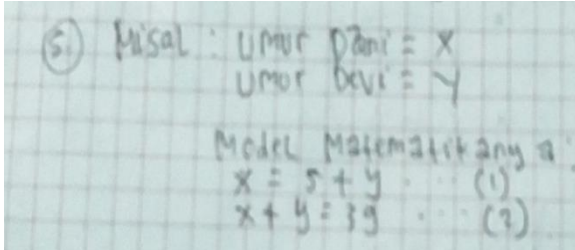 5. Misal : Umur Dani = X
Umur Devi = Y
Model Matematikanya :
x = 5 + y ..... (1)
x + y = 39 .... (2)